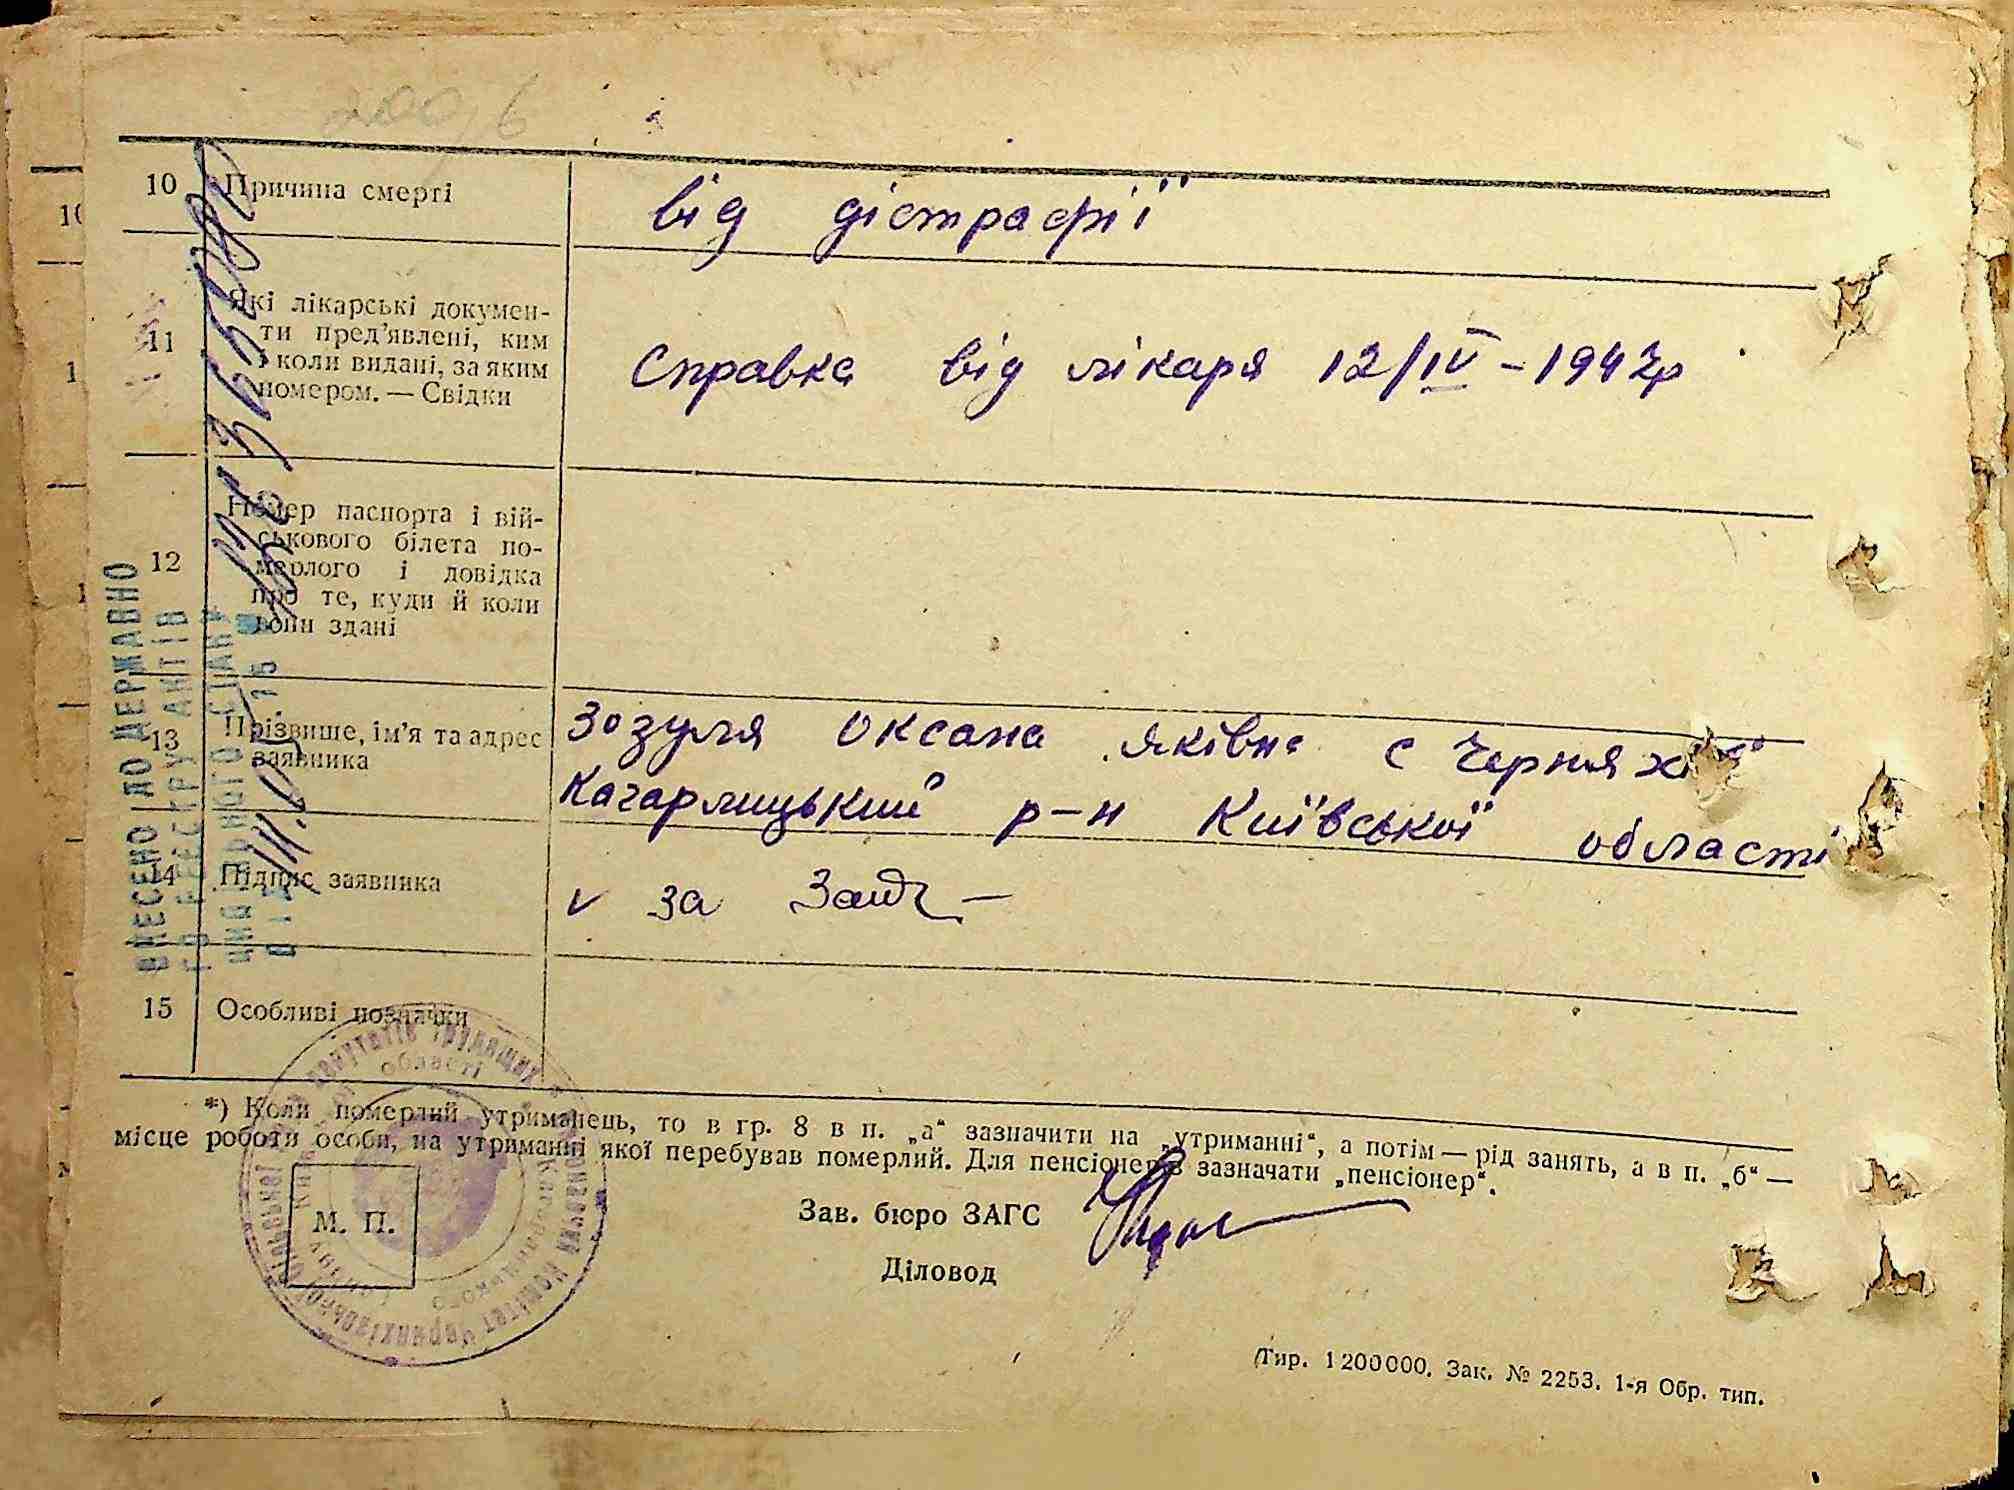 10 Причина смерті
від дістрафії
11 Які лікарські докумен-
ти пред'явлені, ким
і коли видані, за яким
номером. — Свідки
Справка від лікаря 12/IV - 1947р
12 Номер паспорта і вій-
ськового білета по-
мерлого і довідка
про те, куди й коли
вони здані
13 Прізвище, ім'я та адрес
заявника
Зозуля Оксана Яківна с Черняхів
Кагарлицький р-н Київської області
14 Підпис заявника
v за
15 Особливі позначки
ВНЕСЕНО ДО ДЕРЖАВНО
ГО РЕЄСТРУ АКТІВ
ЦИВІЛЬНОГО СТАНУ
*) Коли померлий утриманець, то в гр. 8 в п. „а“ зазначити на „утриманні“, а потім — рід занять, а в п. „б“ —
місце роботи особи, на утриманні якої перебував померлий. Для пенсіонерів зазначати „пенсіонер“.
М. П.
Зав. бюро ЗАГС
Діловод
Тир. 1200000. Зак. № 2253. 1-я Обр. тип.